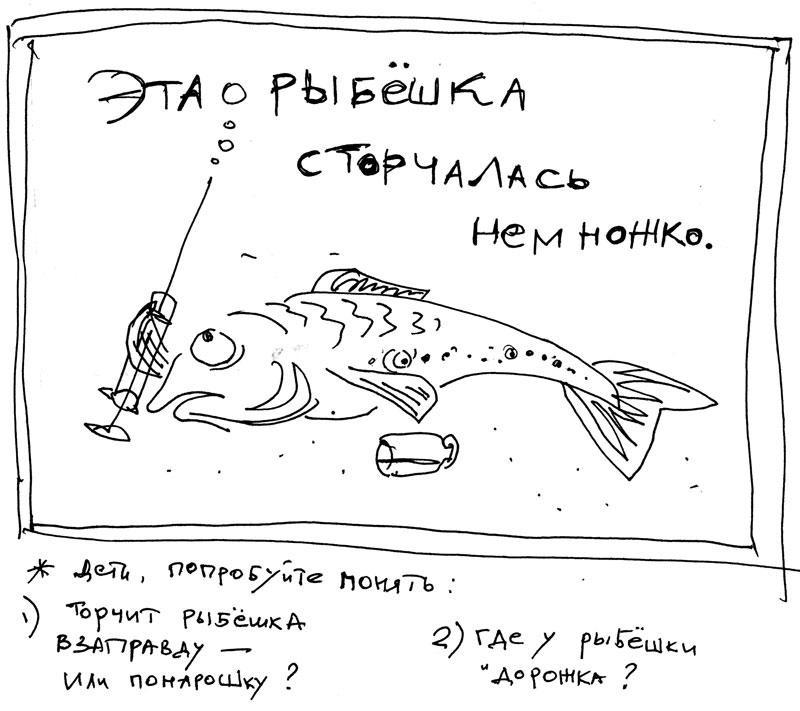 ЭТА РЫБЁШКА
СТОРЧАЛАСЬ
НЕМНОЖКО.
* ДЕТИ, ПОПРОБУЙТЕ ПОНЯТЬ:
1) ТОРЧИТ РЫБЁШКА
ВЗАПРАВДУ —
ИЛИ ПОНАРОШКУ?
2) ГДЕ У РЫБЁШКИ
"ДОРОЖКА?